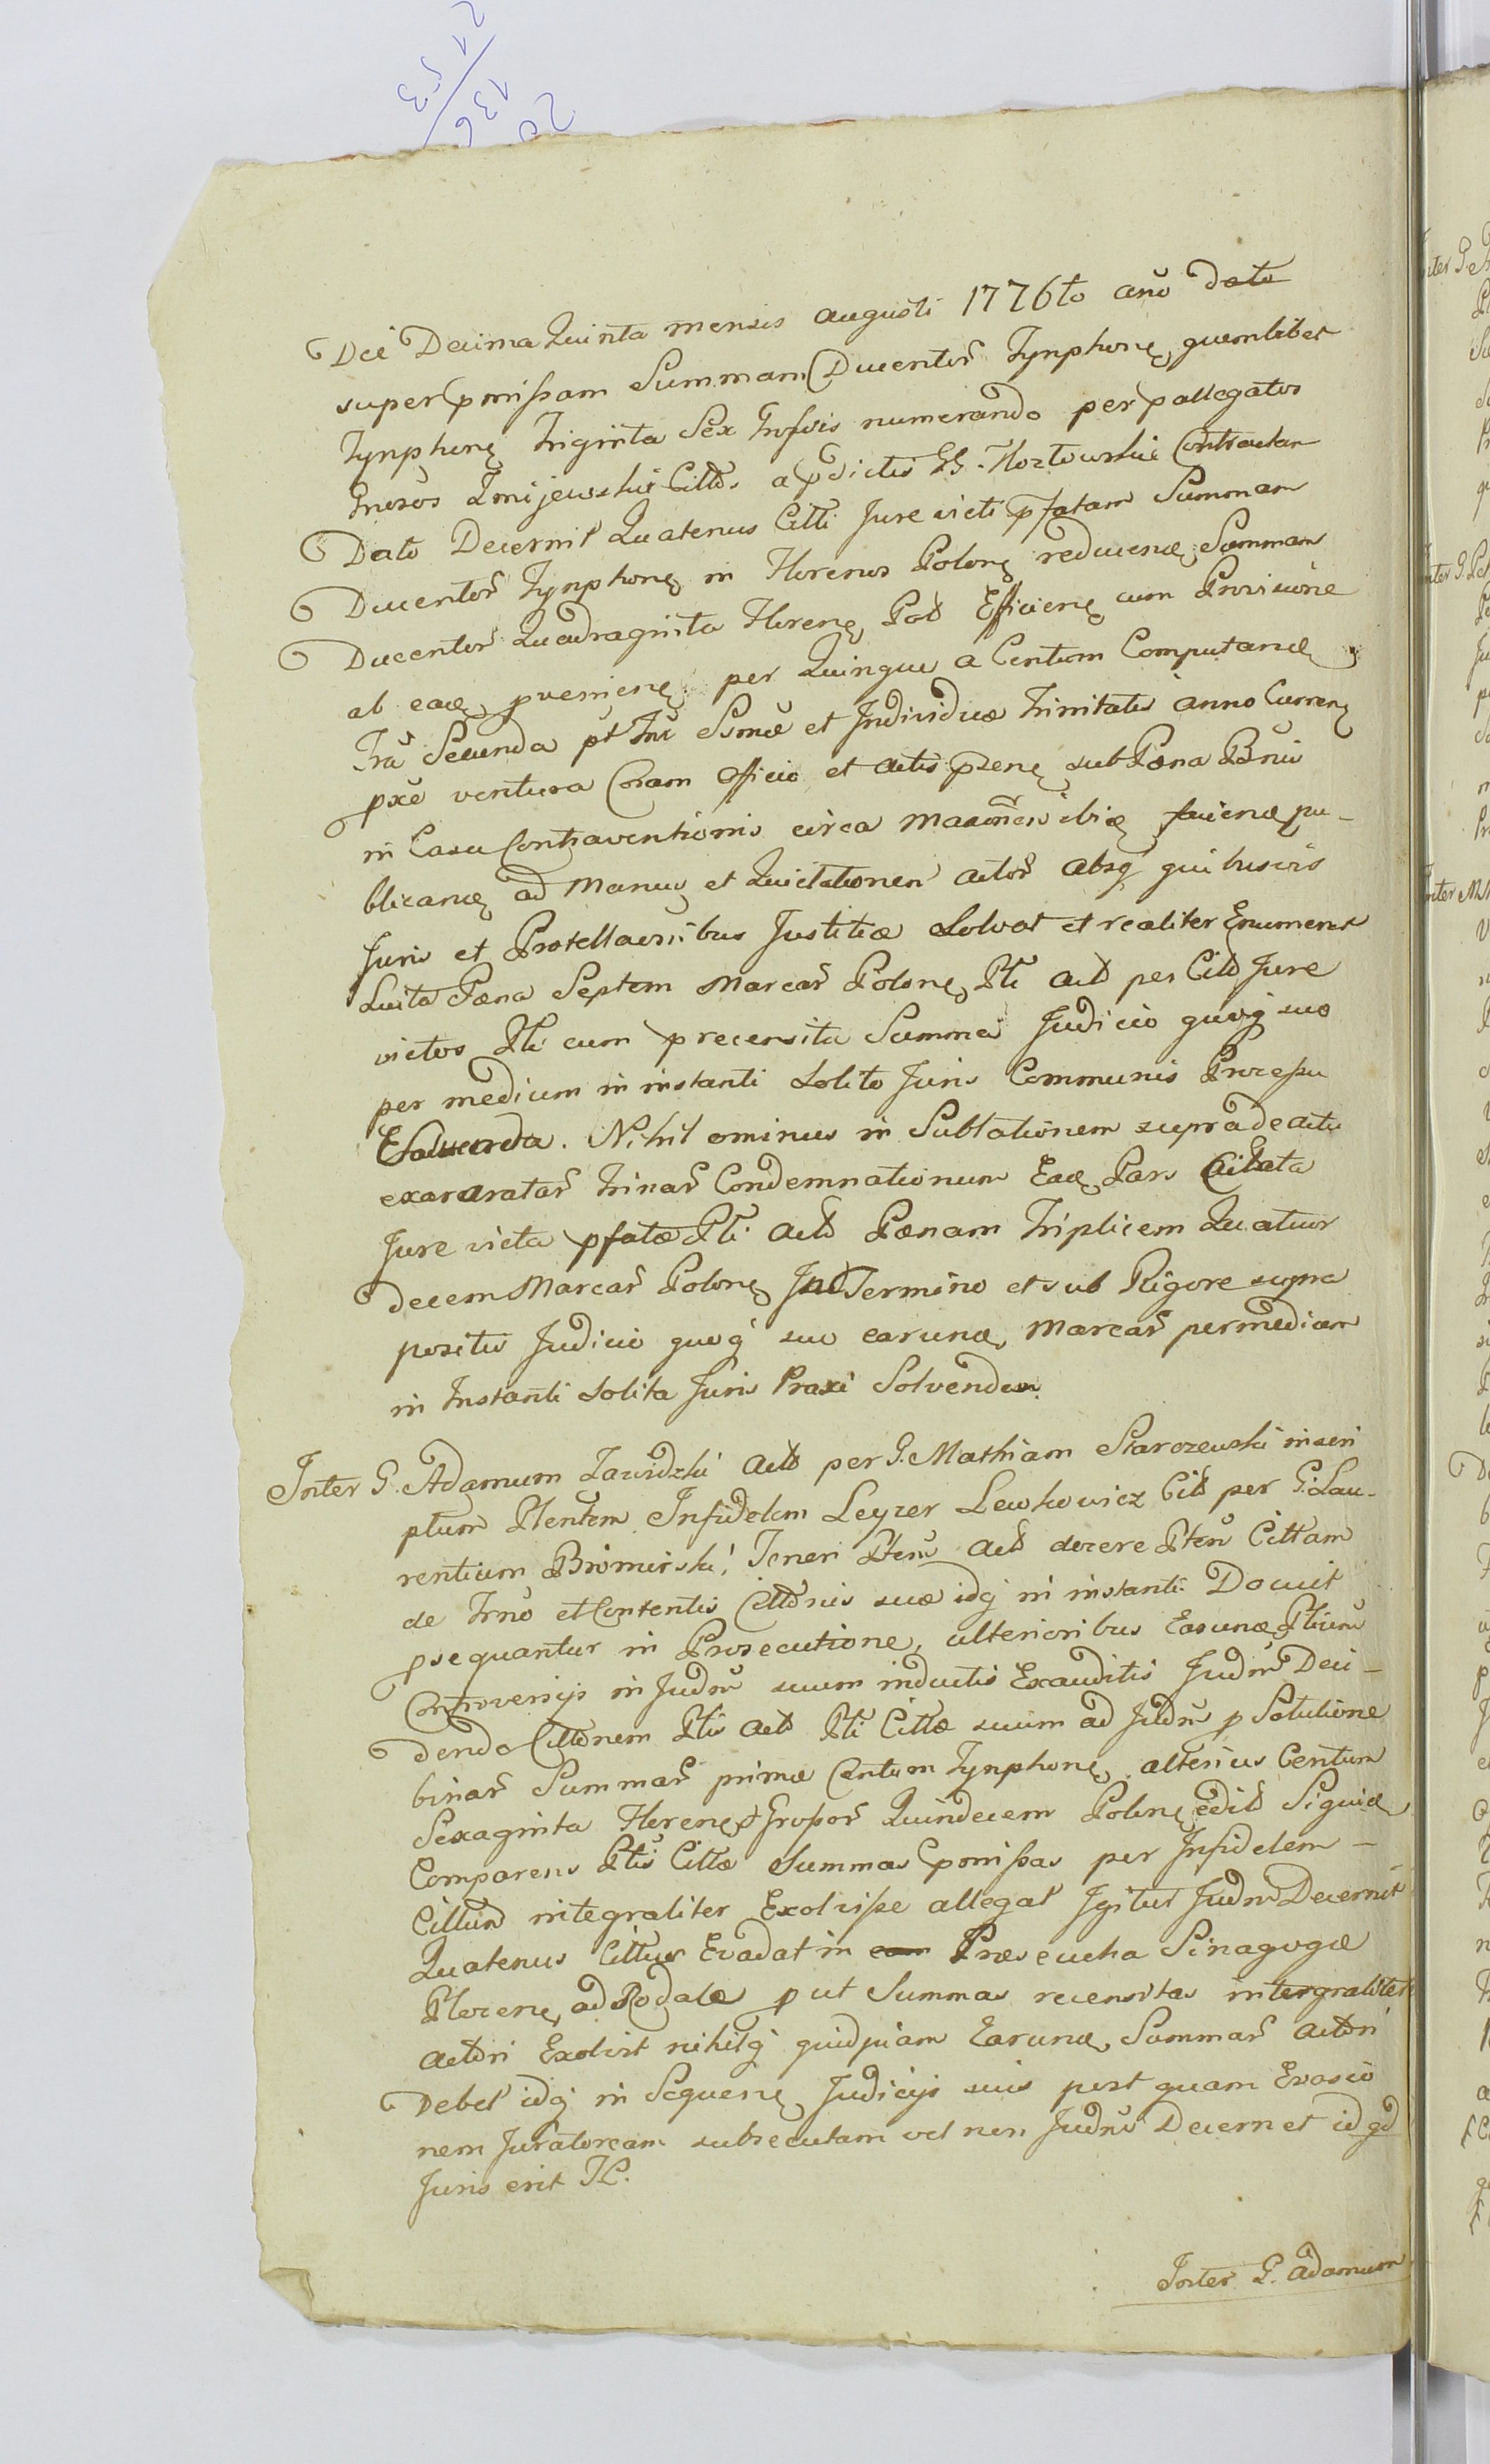 Dei Decima Quinta mensis augusti 1776to anõ dato
super pmissam Summam Ducentor Tynphon, quemlibet
Tynphon Triginta Sex Grossis numerando per pallegatos
Gnosos Zmijewskie Citto a pdictis GG. Kozłowskie Contractam
Dato Decernit Quatenus Citti Jure victi pfatam Summam
Ducentor Tynphon in Florenos Polon reducen Summam
Ducentor Quadraginta Floren Pol Efficien cum Provisione
ab ea provenien per Quinque a Centum Computan
Fra Secunda pt Fu Ssmæ et Individuæ Trinitatis anno Curren
pxe ventura Coram Officio et actis psen sub Pæna Bnis
in Casu Contraventionis circa ibi facien pu-
blican ad Manus et Quietationem actor absq quibusvis
Juris et Justitiæ Solvat et realiter Enumeret
Luita Pæna Septem Marcar Polon, Pti act per Citt Jure
victos Pti cum precensita Summa Judicio quoq suo
per medium in instanti Solito Juris Communis Processu
. Nihil ominus in Sublationem supra de actu
exararatar Trinar Condemnationum Ea Pars Citata
Jure victa pfatæ Pti act Pænam Triplicem Quatuor
decem Marcar Polon Termino et sub Rigore supra
positis Judicio quoq suo earun Marcar permediam
in Instanti Solita Juris Praxi Solvendam
Inter G. Adamum Zawidzki act per G. Mathiam Starozewski inscri
ptum Ptentem Infidelem Leyzer Lewkowicz Citt per G. Lau-
rentium Bromirski, Teneri Pten act docere Pten Cittam
de Trno et Contentis Cittonis suæ idq in instanti Docuit
psequantur in Prosecutione, ulterioribus Earun Ptium
Controversijs in Judm suum inductis Exauditis Judm Deci-
dendo Cittonem Ptis act Pti Cittæ suum ad Judm p Solutione
binar Summar primæ Centum Tynphon, alterius Centum
Sexaginta Floren, et Grossor Quindecem Polon edit Siquid
Comparens Ptis Cittæ Summas pmissas per Infidelem -
Cittum integraliter Exolvisse allegat Igitur Judm Decernit
Quatenus Cittus Evadat in Præseucha Sinagogæ
Plocen, ad Rodale p ut Summas recensitas intergraliter
actori Exolvit nihilq quidpiam Earun Summar actori
Debet idq in Sequen Judicijs suis post quam Evasio
nem Juratoream subsecutam vel non Judm Decernet id qd
Juris erit
Inter G. Adamum